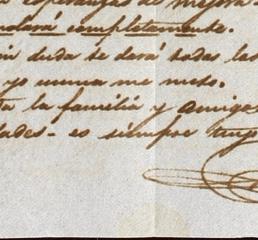 esperanzas de mejora
completamente.
duda te dará todas las
yo nunca me meto.
la familia y amigos
dades - es siempre tuyo